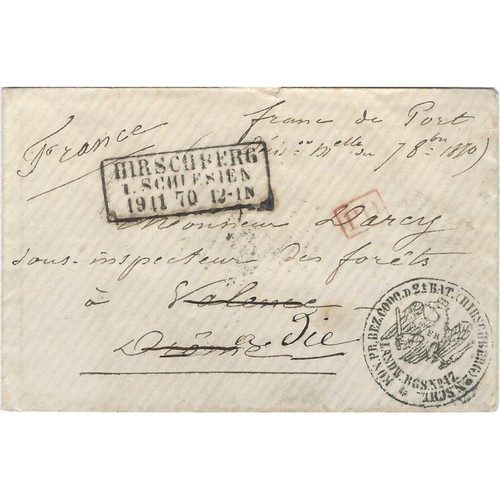 France
franc de Port
du 7 8bre 1870)
HIRSCHBERG
I. SCHLESIEN
19 11 70 12-1N
Monsieur Darcy
sous-inspecteur des forêts
à Valence
Die
Drôme
KÖN. PR. BEZ. CODO. D. 2t. BAT. (HIRSCHBERG)
LANDW. RGS. No. 47.